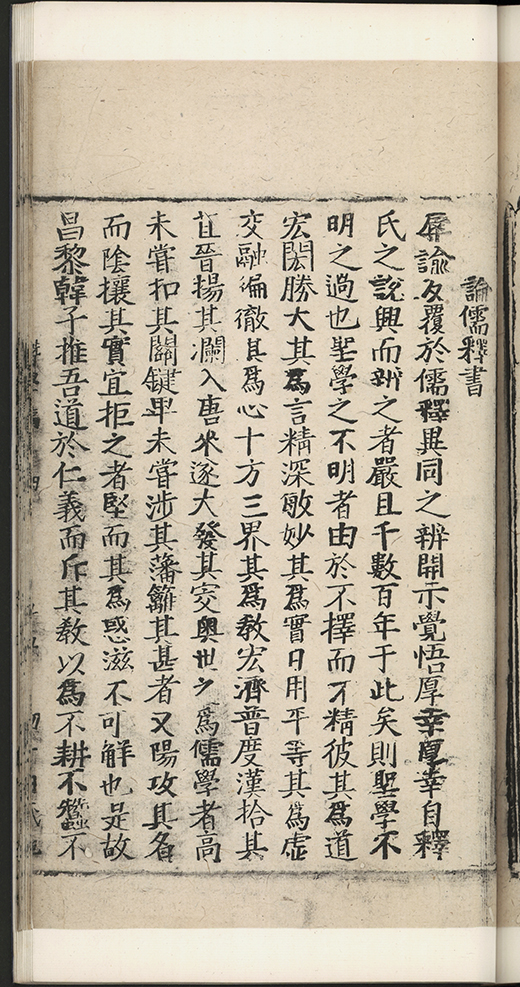 論儒釋書
辱諭反覆於儒釋異同之辨開示覺悟厚幸厚幸自釋
氏之說興而辨之者嚴且千數百年于此矣則聖學不
明之過也聖學之不明者由於不擇而不精彼其爲道
宏闊勝大其爲言精深敏妙其爲實日用平等其爲虛
交融徧徹其爲心十方三界其爲教宏濟普度漢拾其
苴晉揚其瀾入唐來遂大發其突奧世之爲儒學者高
未甞扣其關鍵卑未甞涉其藩籬其甚者又陽攻其名
而陰攘其實宜拒之者堅而其爲惑滋不可解也是故
昌黎韓子推吾道於仁義而斥其教以爲不耕不蠶不